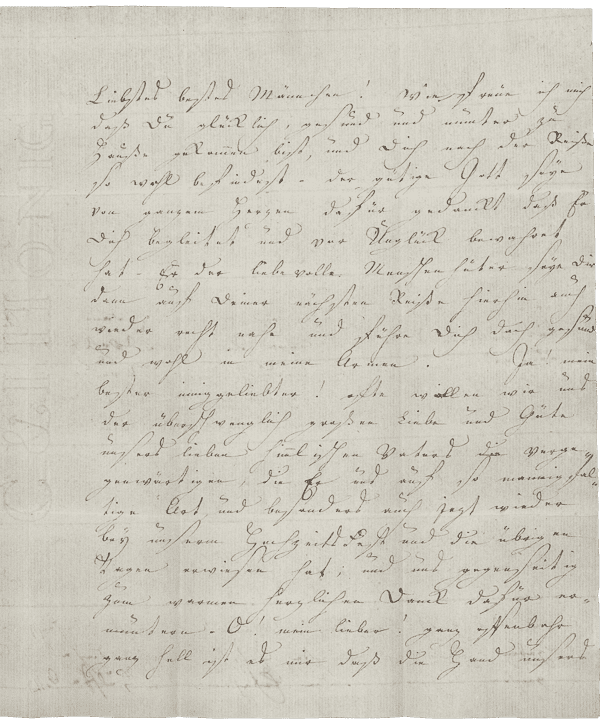 Liebstes bestes Männchen! Wie freue ich mich
daß Du glücklich, gesund und munter zu
Hauße gekommen bist, und Dich nach der Reiße
so wohl befindest - der gütige Gott seye
von ganzem Herzen dafür gedanckt daß Er
Dich begleitet und vor Unglück bewahret
hat - Er der liebevolle Menschenhüter seye Dir
dann auf Deiner nächsten Reiße hierhin auch
wieder recht nahe und führe Dich doch gesund
und wohl in meine Armen. Ja! mein
bester inniggeliebter! ofte wollen wir uns
der überschwenglich großen Liebe und Güte
unsers lieben himlischen Vaters die verge-
genwärtigen, die Er uns auf so mannigfal-
tige Art, und besonders auch jezt wieder
bey unserm Hochzeits Feste und die übrigen
Tagen erwiesen hat; und uns gegenseitig
zum warmen herzlichen Danck dafür er-
muntern - O! mein lieber! ganz offenbahr
ganz hell ist es mir daß die Hand unsers